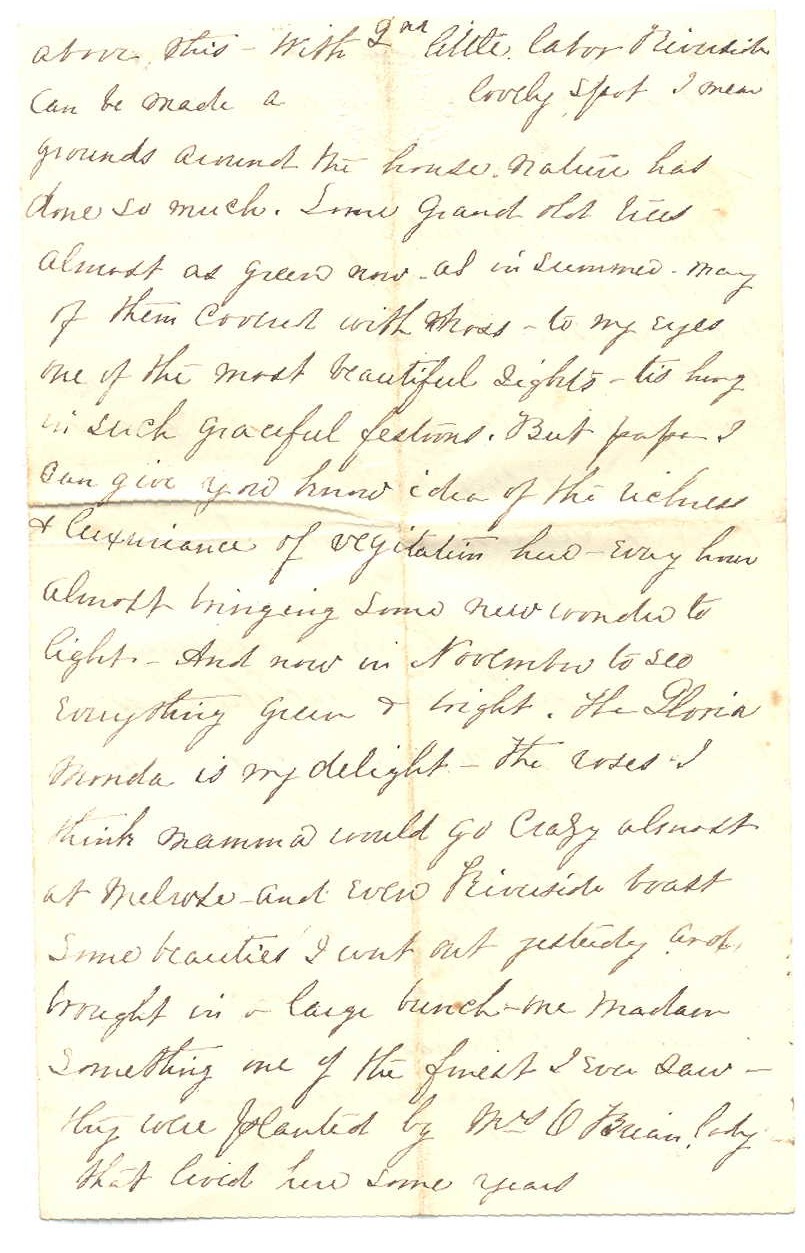 above this - With 2nd little labor Riverside
can be made a lovely spot I mean
grounds around the house. nature has
done so much. Some grand old trees
almost as green now - as in summer - many
of them covered with moss - to my eyes
one of the most beautiful sights - tis hung
in such graceful festoons. But papa I
can give you know idea of the richness
& luxuriance of vegitation here - Evry hour
almost bringing some new wonder to
light. - And now in November to see
Everything green & bright. the Gloria
Monda is my delight - the roses I
think mamma would go Crazy almost
at Melrose - and Even Riverside boast
Some beauties I went out yesterdy and
brought in a large bunch - one Madam
Something one of the finest I Ever saw -
they were planted by Mrs O Brian, lady
that lived here some years